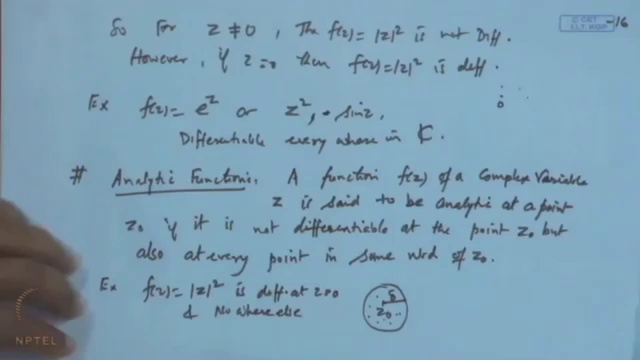 So For z ≠ 0, The f(z) = |z|² is not Diff.
However, if z=0 then f(z)=|z|² is diff.
Ex f(z) = e^z or z², sin z,
0
Differentiable every where in ₵.
# Analytic Functions. A function f(z) of a Complex Variable
z is said to be analytic at a point
z₀ if it is not differentiable at the point z₀ but
also at every point in some nbd of z₀.
Ex f(z) = |z|² is diff. at z=0
& No where else
δ
z₀
© CET
I.I.T. KGP
NPTEL